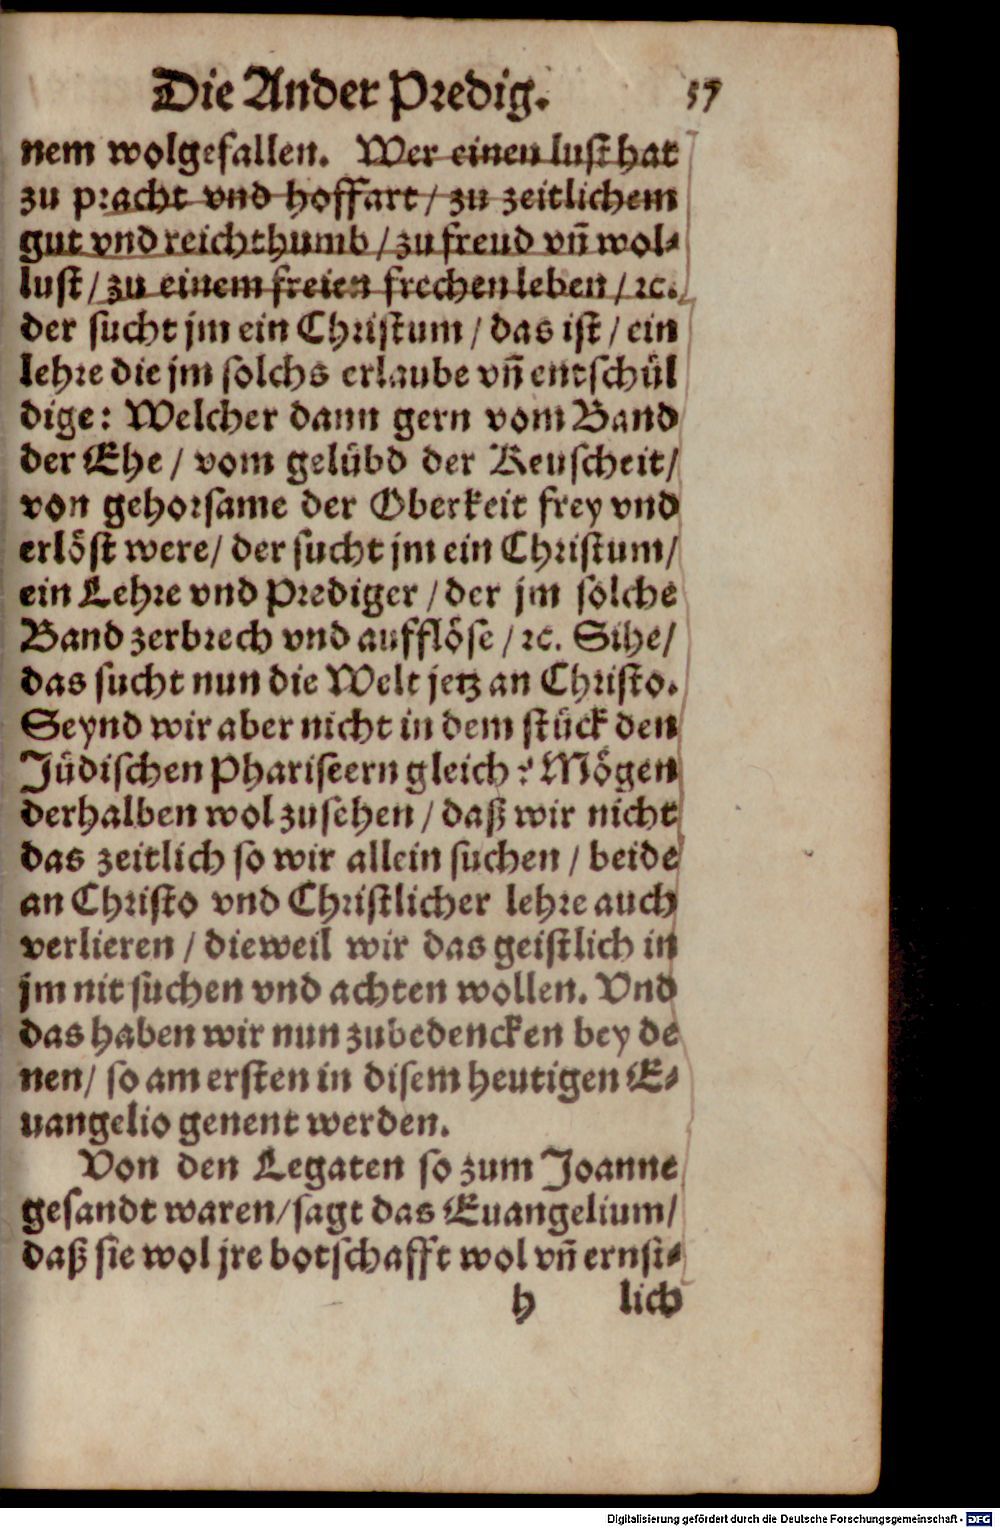 Die Ander Predig. 57
nem wolgefallen. Wer einen lust hat
zu pracht vnd hoffart / zu zeitlichem
gut vnd reichthumb / zu freud vñ wol-
lust / zu einem freien frechen leben / ꝛc.
der sucht jm ein Christum / das ist / ein
lehre die jm solchs erlaube vñ entschül
dige: Welcher dann gern vom Band
der Ehe / vom gelübd der Keuscheit /
von gehorsame der Oberkeit frey vnd
erlöst were / der sucht jm ein Christum /
ein Lehre vnd Prediger / der jm solche
Band zerbrech vnd aufflöse / ꝛc. Sihe /
das sucht nun die Welt jetz an Christo.
Seynd wir aber nicht in dem stück den
Jüdischen Phariseern gleich? Mögen
derhalben wol zusehen / daß wir nicht
das zeitlich so wir allein suchen / beide
an Christo vnd Christlicher lehre auch
verlieren / dieweil wir das geistlich in
jm nit suchen vnd achten wollen. Vnd
das haben wir nun zubedencken bey de
nen / so am ersten in disem heutigen E-
uangelio genent werden.
Von den Legaten so zum Joanne
gesandt waren / sagt das Euangelium /
daß sie wol jre botschafft wol vñ ernst-
h lich
Digitalisierung gefördert durch die Deutsche Forschungsgemeinschaft - DFG